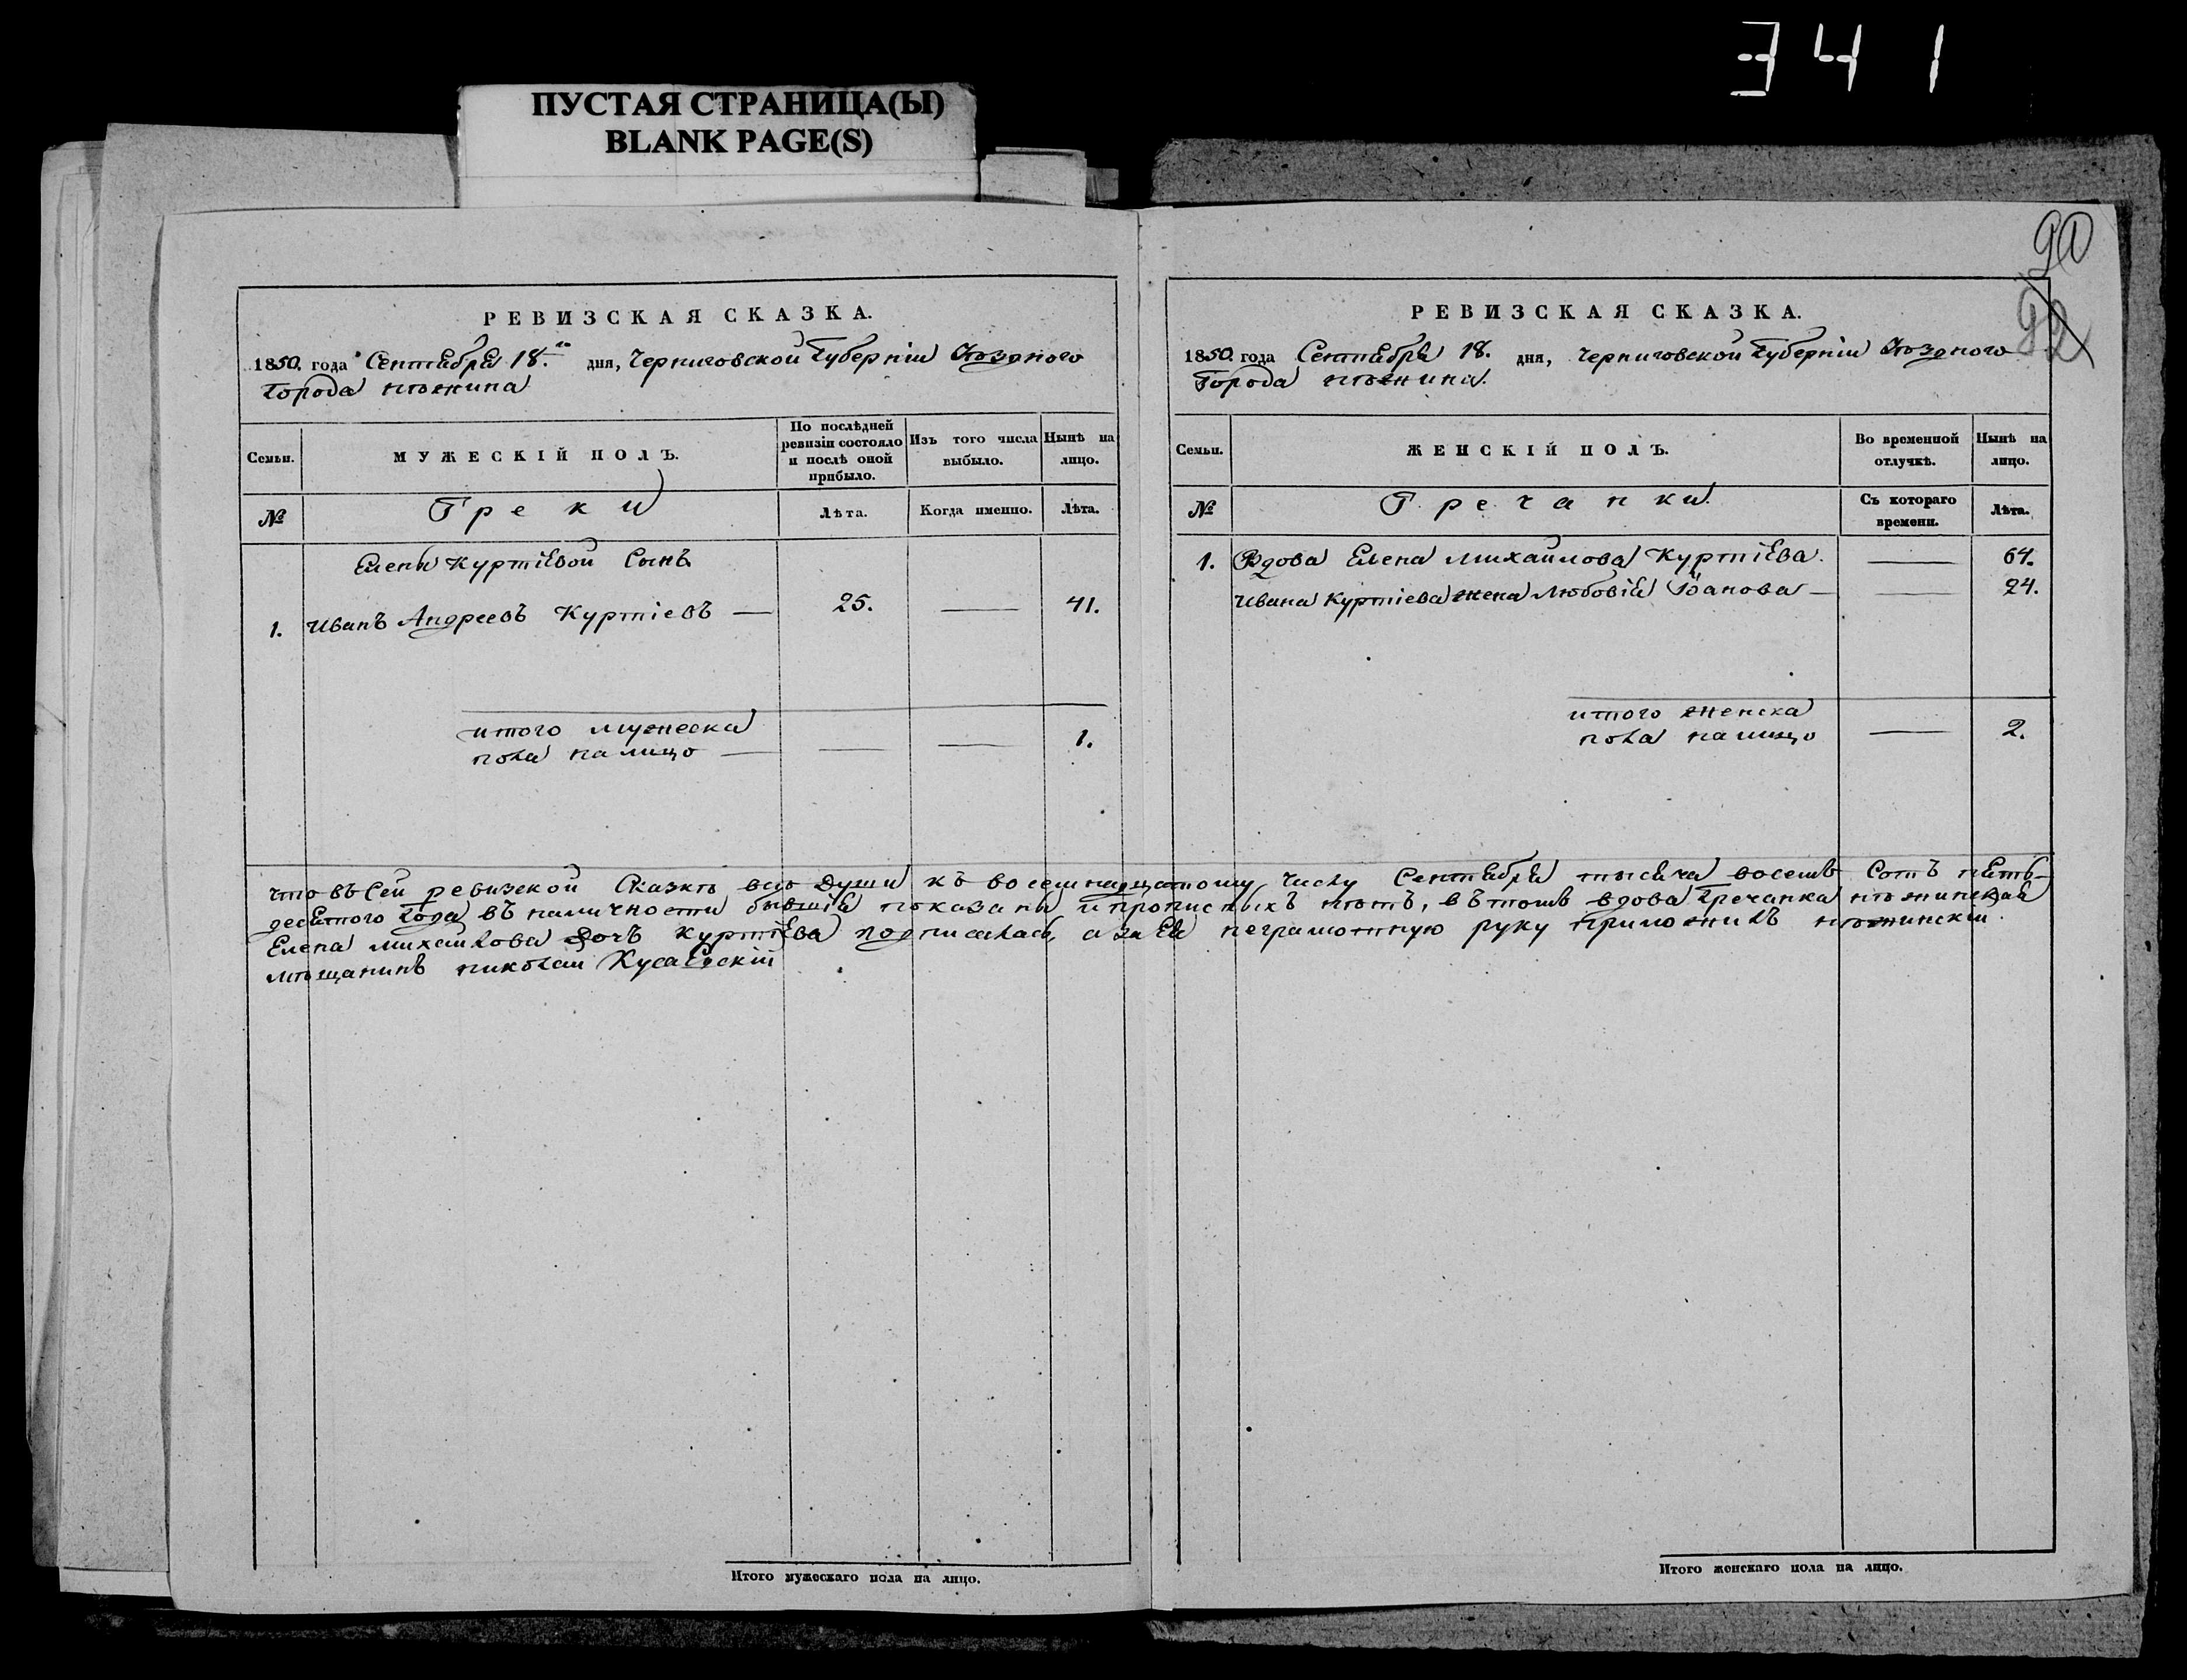 341
ПУСТАЯ СТРАНИЦА(Ы)
BLANK PAGE(S)
90
92
РЕВИЗСКАЯ СКАЗКА.
1850. года Сентября 18.го дня, Черниговской Губернiи Уѣзднаго
Города нѣжина
Семьи.
МУЖЕСКІЙ ПОЛЪ.
По послѣдней ревизіи состояло и послѣ оной прибыло.
Изъ того числа выбыло.
Нынѣ на лицо.
№
Греки
Лѣта.
Когда именно.
Лѣта.
Елены Куртіевой Сынъ
1. Иванъ Андреевъ Куртіевъ — 25. — 41.
итого мужеска
пола на лицо — — — 1.
РЕВИЗСКАЯ СКАЗКА.
1850. года Сентября 18. дня, Черниговской Губерніи Уѣзднаго
Города нѣжина.
Семьи.
ЖЕНСКІЙ ПОЛЪ.
Во временной отлучкѣ.
Нынѣ на лицо.
№
Гречанки.
Съ котораго времени.
Лѣта.
1. Вдова Елена Михайлова Куртіева. — 64.
Ивана Куртіева жена Любовія Иванова — — 24.
итого женска
пола на лицо — 2.
что въ Сей ревизской Сказкѣ всѣ Души къ восемнацатому Числу Сентября тысяча восемь Сотъ пять-
десятого Года въ наличности бывшія показаны и прописныхъ нѣтъ, въ томъ вдова Гречанка нѣжинская
Елена Михайлова Дочь Куртіева подписалась, а за Ея неграмотную руку приложилъ нѣжинскій
мѣщанинъ николай
Итого мужескаго пола на лицо.
Итого женскаго пола на лицо.